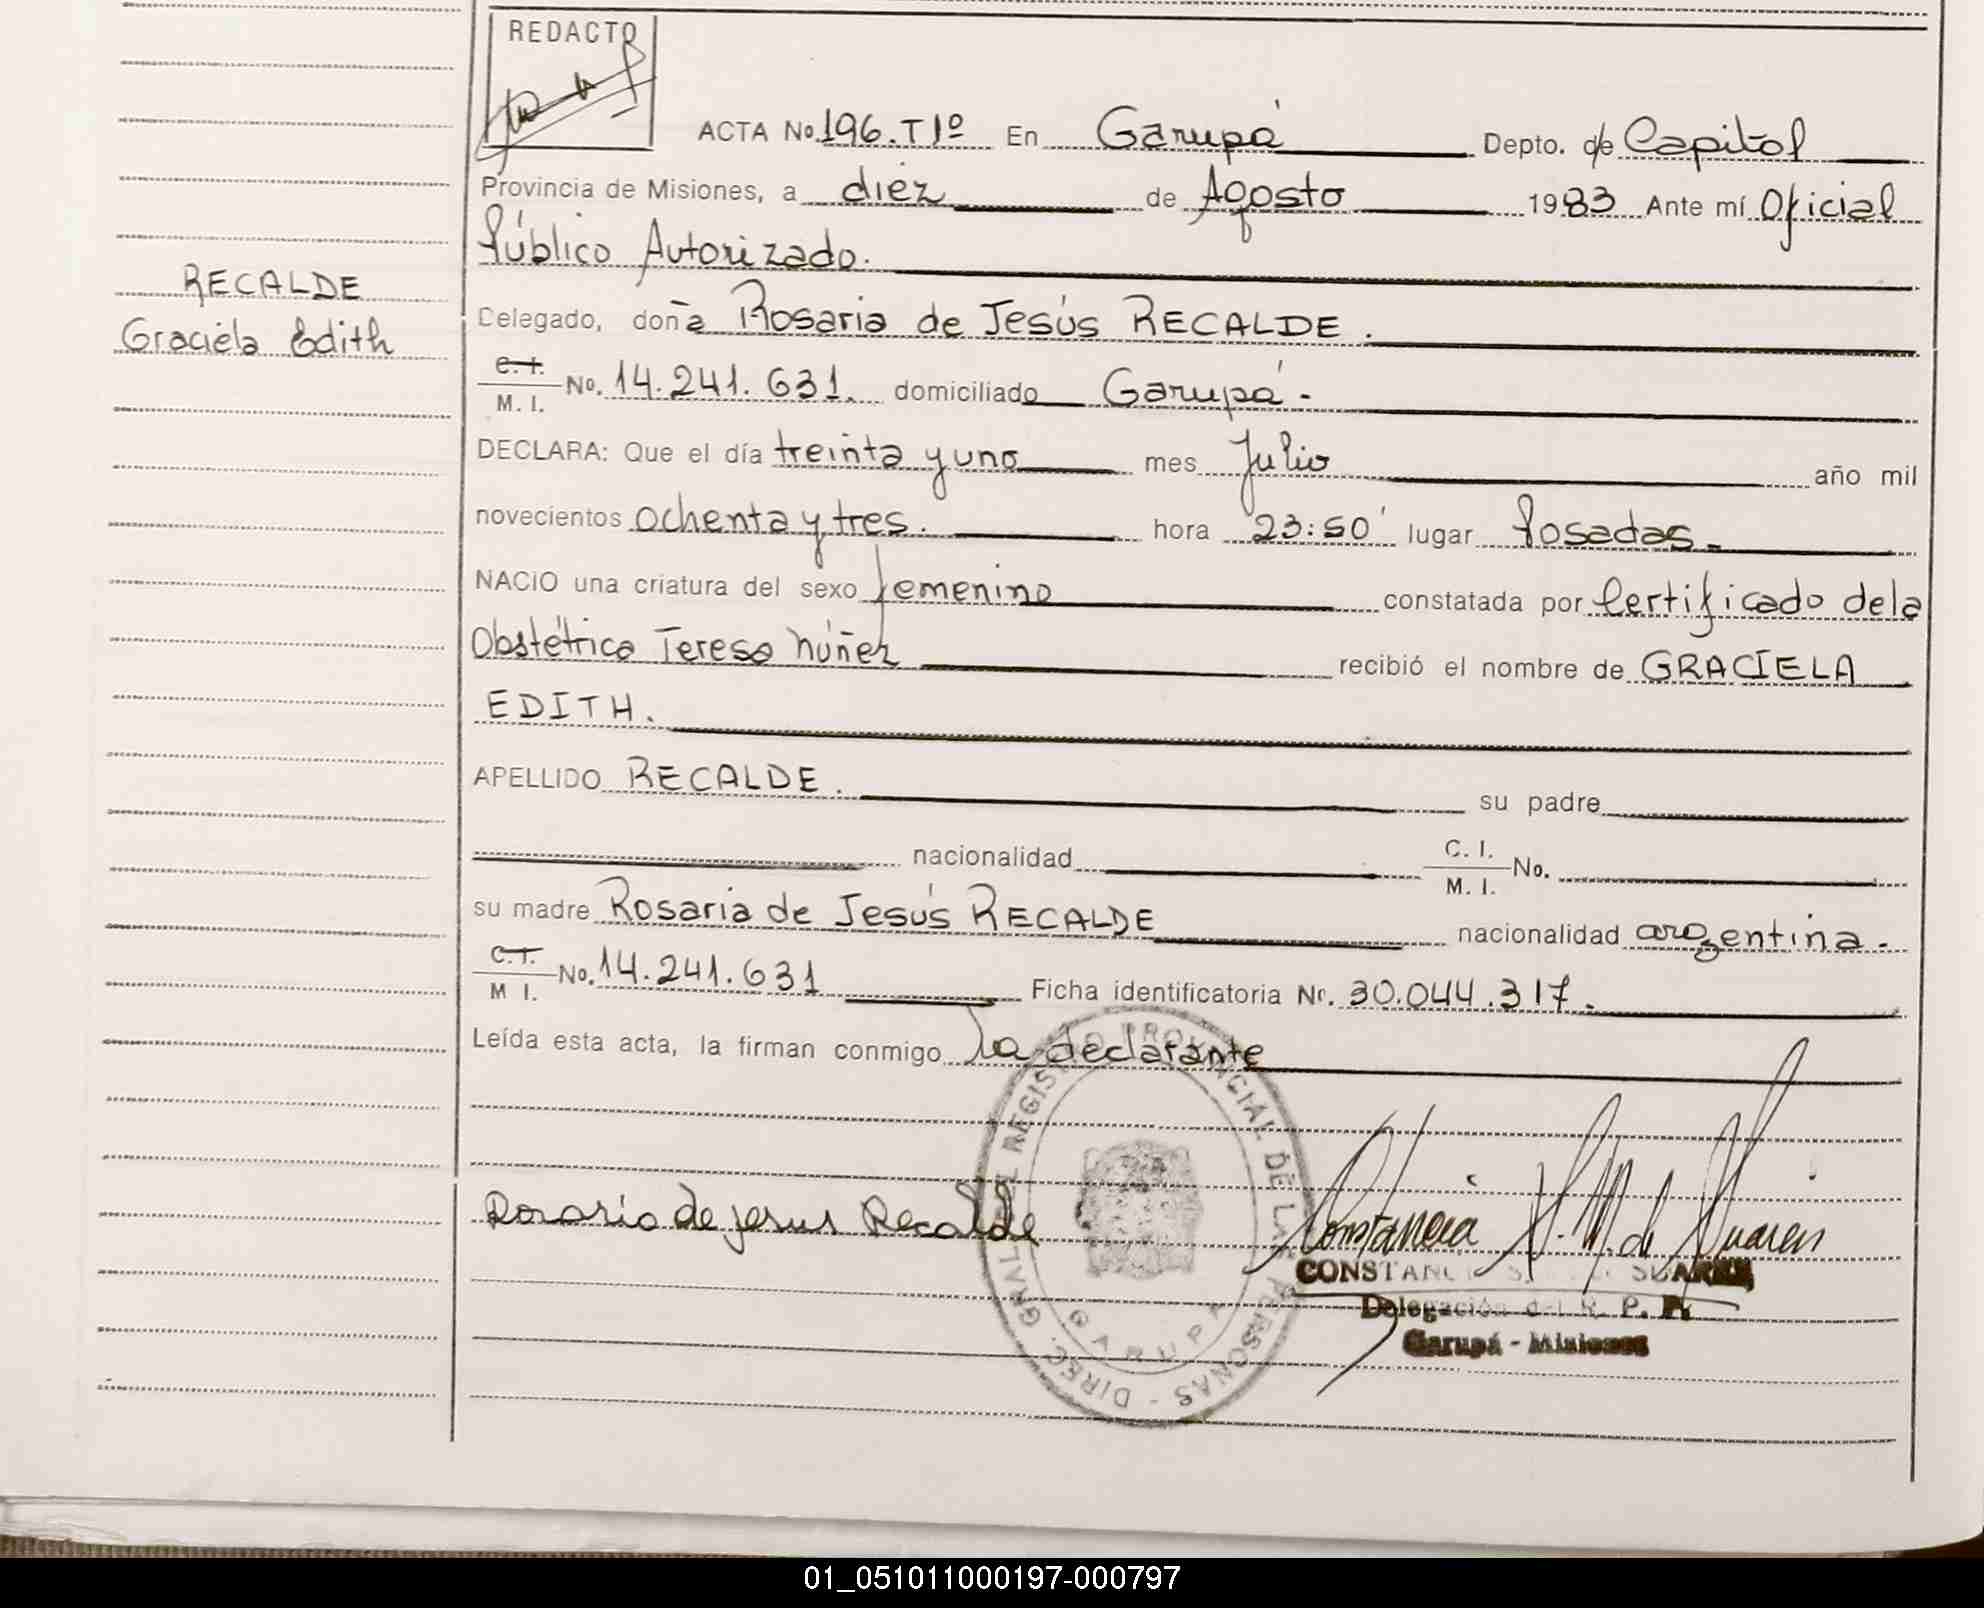 REDACTO
ACTA No. 196. T 1º En Garupá Depto. de Capital
Provincia de Misiones, a diez de Agosto 1983 Ante mí Oficial
Público Autorizado.
RECALDE
Graciela Edith
Delegado, doña Rosaria de Jesús RECALDE.
C.I. M. I. No. 14.241.631. domiciliado Garupá -
DECLARA: Que el día treinta y uno mes Julio año mil
novecientos ochenta y tres. hora 23:50' lugar Posadas.-
NACIO una criatura del sexo femenino constatada por Certificado de la
Obstétrica Teresa Núñez recibió el nombre de GRACIELA
EDITH.
APELLIDO RECALDE. su padre
nacionalidad C. I. M. I. No.
su madre Rosaria de Jesús RECALDE nacionalidad argentina.-
C.I. M I. No. 14.241.631 Ficha identificatoria Nr. 30.044.317.
Leída esta acta, la firman conmigo la declarante
DIREC. GRAL. DEL REGISTRO PROVINCIAL DE LAS PERSONAS -
GARUPA
Rosario de jesus Recalde
Constancia S. M. de Suarez
CONSTANCIA S. SUAREZ
Delegación del R. P. P.
Garupá - Misiones
01_051011000197-000797